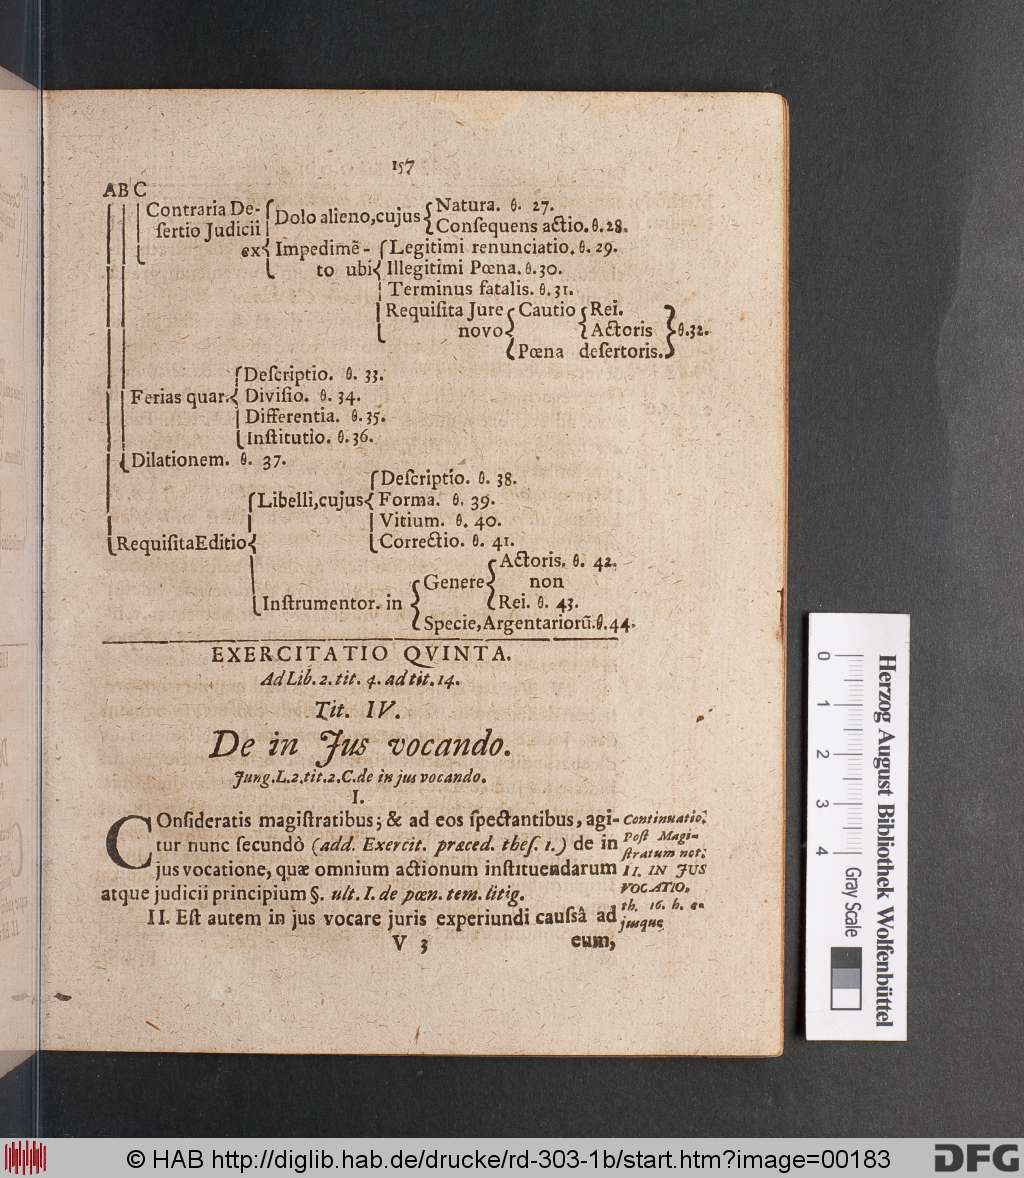 157
A B C
Contraria De- Dolo alieno, cujus Natura. θ. 27.
ſertio Judicii Conſequens actio. θ. 28.
ex Impedimẽ- Legitimi renunciatio. θ. 29.
to ubi Illegitimi Pœna. θ. 30.
Terminus fatalis. θ. 31.
Requiſita Jure Cautio Rei.
novo Actoris θ. 32.
Pœna deſertoris.
Deſcriptio. θ. 33.
Ferias quar. Diviſio. θ. 34.
Differentia. θ. 35.
Inſtitutio. θ. 36.
Dilationem. θ. 37.
Deſcriptio. θ. 38.
Libelli, cujus Forma. θ. 39.
Vitium. θ. 40.
Requiſita Editio Correctio. θ. 41.
Actoris. θ. 42.
Genere non
Inſtrumentor. in Rei. θ. 43.
Specie, Argentariorũ. θ. 44.
EXERCITATIO QVINTA.
Ad Lib. 2. tit. 4. ad tit. 14.
Tit. IV.
De in Jus vocando.
Jung. L. 2. tit. 2. C. de in jus vocando.
I.
COnſideratis magiſtratibus; & ad eos ſpectantibus, agi-
tur nunc ſecundò (add. Exercit. præced. theſ. 1.) de in
jus vocatione, quæ omnium actionum inſtituendarum
atque judicii principium §. ult. I. de pœn. tem. litig.
II. Eſt autem in jus vocare juris experiundi cauſsâ ad
Continuatio.
Poſt Magi-
ſtratum not.
II. IN JUS
VOCATIO.
th. 16. h. e-
juſque
V 3 eum,
Herzog August Bibliothek Wolfenbüttel
0 1 2 3 4
Gray Scale
© HAB http://diglib.hab.de/drucke/rd-303-1b/start.htm?image=00183
DFG